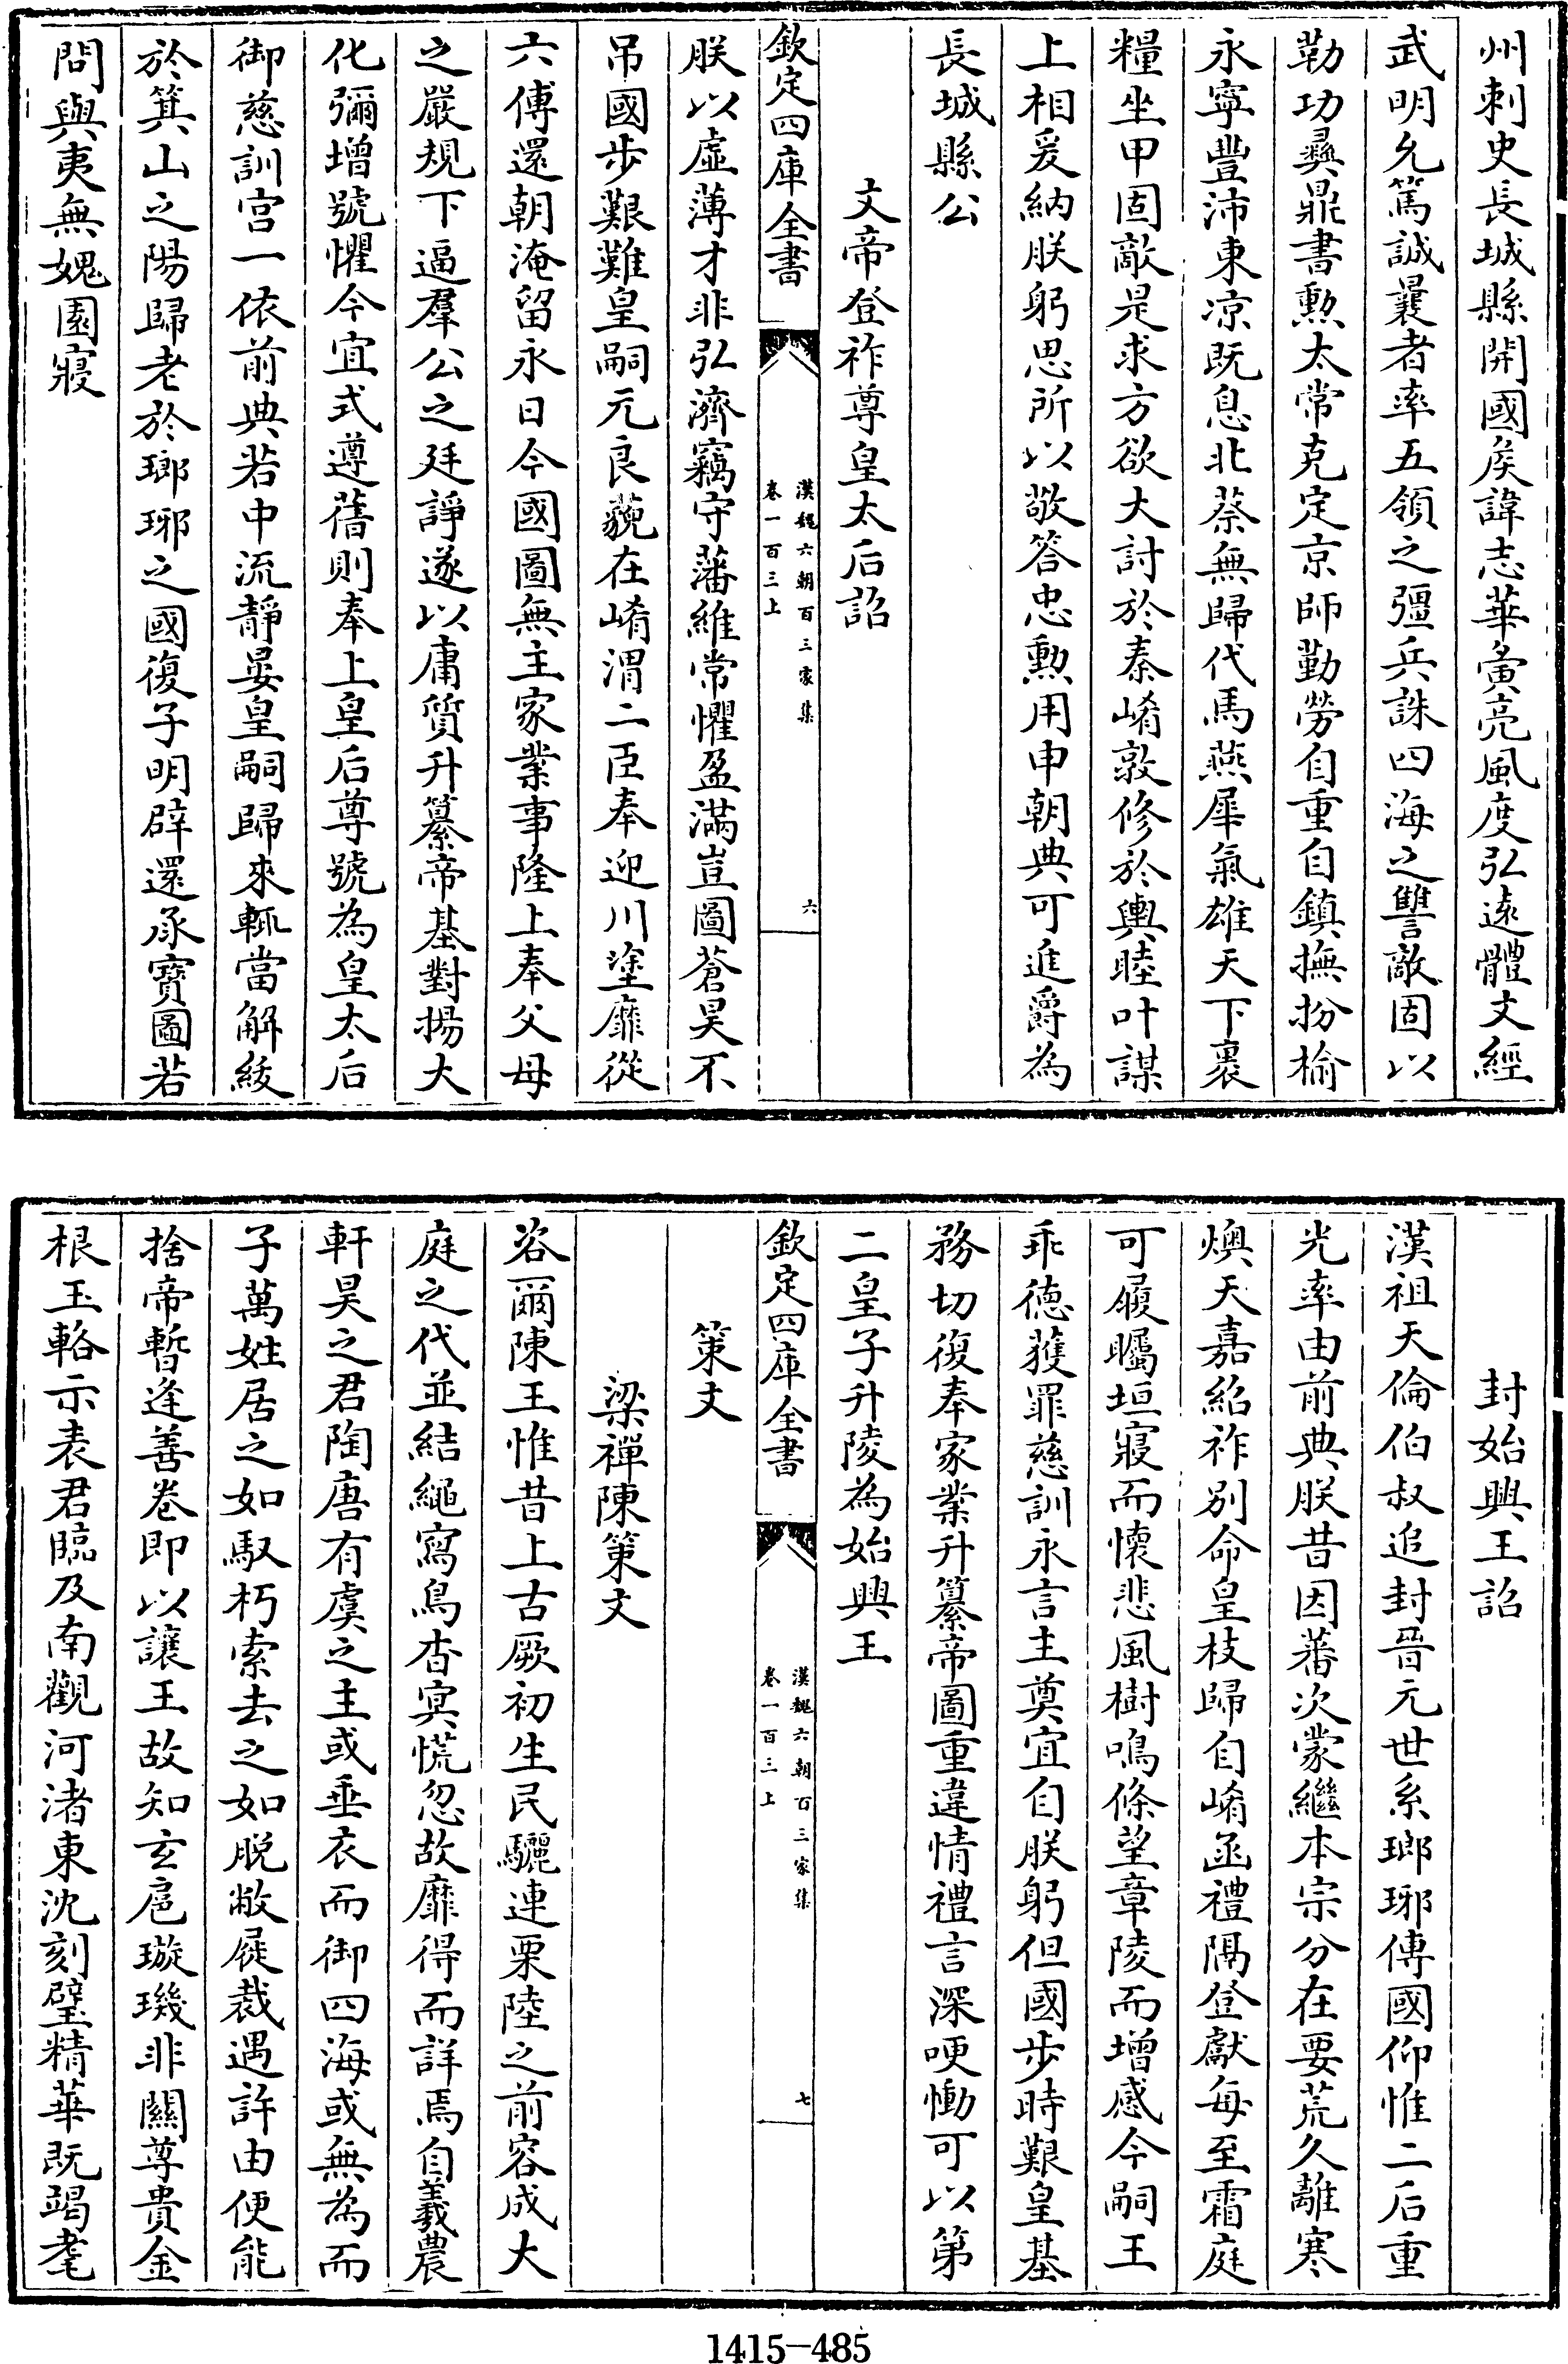 州刺史長城縣開國侯諱志華寅亮風度弘遠體文經
武明允篤誠曩者率五領之彊兵誅四海之讐敵固以
勒功彞鼎書勲太常克定京師勤勞自重自鎮撫枌榆
永寧豐沛東凉既息北蔡無歸代馬燕犀氣雄天下裹
糧坐甲固敵是求方欲大討於秦崤敦修於輿睦叶謀
上相爰納朕躬思所以敬答忠勲用申朝典可進爵為
長城縣公
文帝登祚尊皇太后詔
欽定四庫全書
漢魏六朝百三家集
卷一百三上
六
朕以虛薄才非弘濟竊守藩維常懼盈滿豈圖蒼昊不
吊國步艱難皇嗣元良藐在崤渭二臣奉迎川塗靡從
六傳還朝淹留永日今國圖無主家業事隆上奉父母
之嚴規下逼羣公之廷諍遂以庸質升纂帝基對揚大
化彌增號懼今宜式遵舊則奉上皇后尊號為皇太后
御慈訓宫一依前典若中流靜晏皇嗣歸來輒當解紱
於箕山之陽歸老於瑯琊之國復子明辟還承寶圖若
問與夷無媿園寢
封始興王詔
漢祖天倫伯叔追封晉元世系瑯琊傳國仰惟二后重
光率由前典朕昔因蕃次蒙繼本宗分在要荒久離寒
燠天嘉紹祚别命皇枝歸自崤函禮隅登獻每至霜庭
可履矚垣寢而懷悲風樹鳴條望章陵而增感今嗣王
乖德獲罪慈訓永言主奠宜自朕躬但國步時艱皇基
務切復奉家業升纂帝圖重違情禮言深哽慟可以第
二皇子升陵為始興王
欽定四庫全書
漢魏六朝百三家集
卷一百三上
七
策文
梁禪陳策文
咨爾陳王惟昔上古厥初生民驪連栗陸之前容成大
庭之代並結繩寫鳥杳冥慌忽故靡得而詳焉自羲農
軒昊之君陶唐有虞之主或垂衣而御四海或無為而
子萬姓居之如馭朽索去之如脱敝屣裁遇許由便能
捨帝暫逢善卷即以讓王故知玄扈璇璣非關尊貴金
根玉輅示表君臨及南觀河渚東沈刻璧精華既竭耄
1415-485